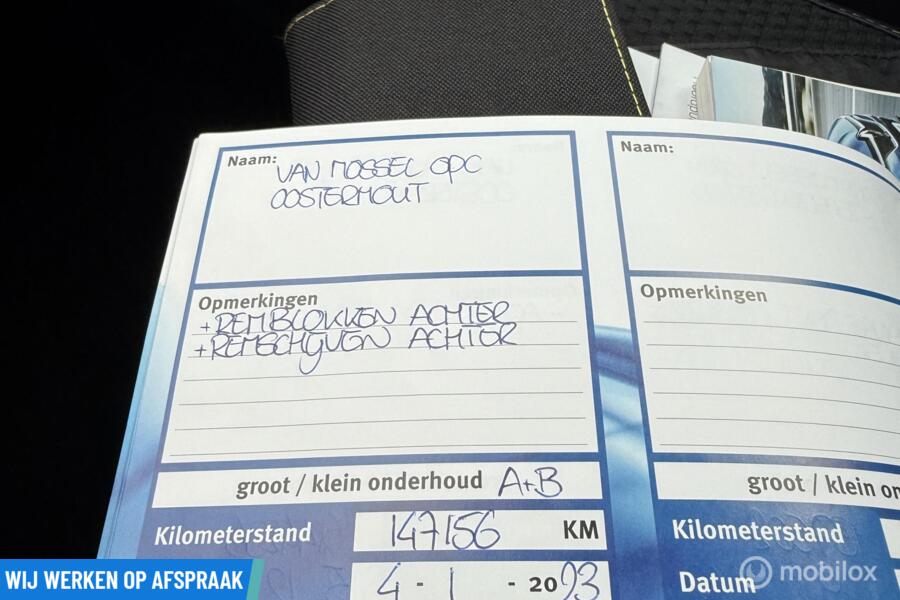 Naam:
VAN MOSSEL OPC
OOSTERHOUT
Opmerkingen
+ REMBLOKKEN ACHTER
+ REMSCHIJVEN ACHTER
groot / klein onderhoud A+B
Kilometerstand 147156 KM
4 - 1 - 2023
Naam:
Opmerkingen
groot / klein on
Kilometerstand
Datum
WIJ WERKEN OP AFSPRAAK
mobilox